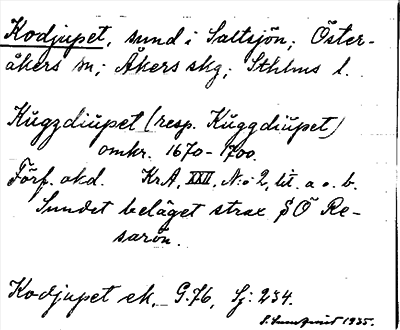 Kodjupet, sund i Saltsjön; Öster-
åkers sn; Åkers skg; Sthlms l.
Kuggdiupet (resp. Kŭggdiupet)
omkr. 1670-1700.
Förf. okd. KrA, XXII, N:o 2, lit. a o. b.
Sundet beläget strax SÖ Re-
sarön.
Kodjupet ek. G.76, Sj: 234.
1935.